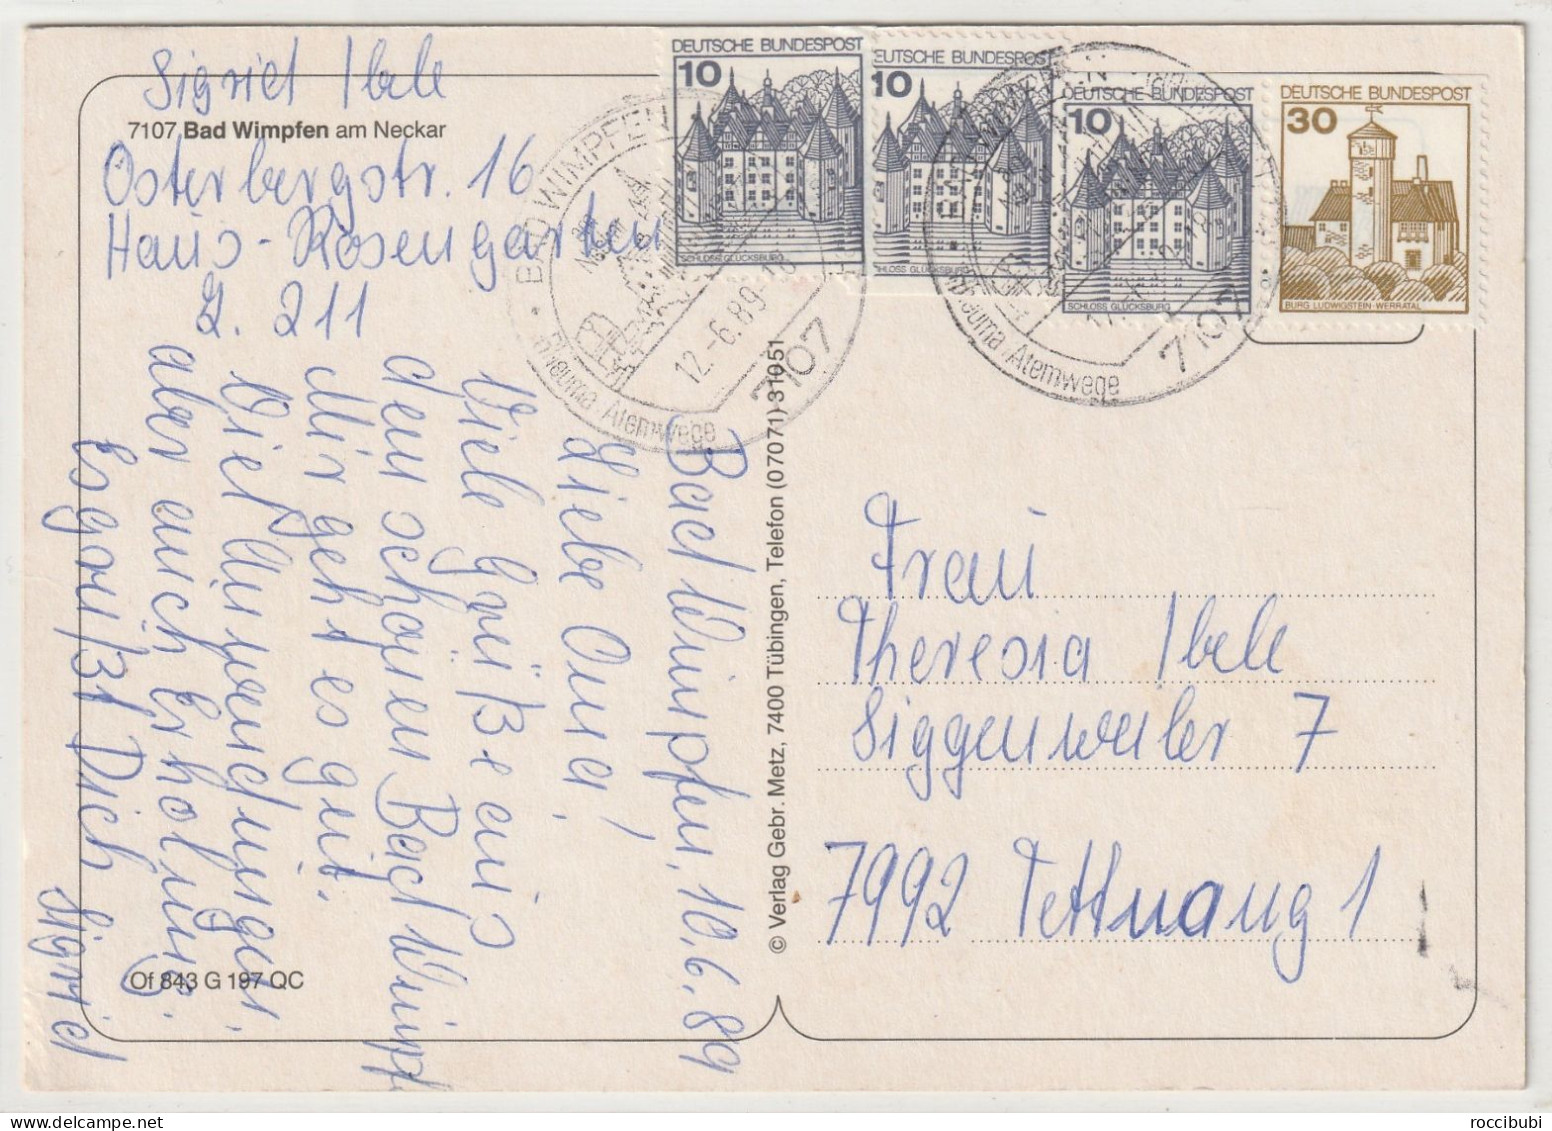 Sigrid Ibele
7107 Bad Wimpfen am Neckar
Osterbergstr. 16
Haus-Rosengarten
Z. 211
Bad Wimpfen, 10.6.89
Liebe Oma!
Viele Grüße aus
dem schönen Bad Wimpf
Mir geht es gut.
Viel Anwendungen.
aber auch Erholung.
Es grüßt Dich Sigrid
Of 843 G 197 QC
© Verlag Gebr. Metz, 7400 Tübingen, Telefon (07071) 31051
DEUTSCHE BUNDESPOST
10
SCHLOSS GLÜCKSBURG
DEUTSCHE BUNDESPOST
10
SCHLOSS GLÜCKSBURG
DEUTSCHE BUNDESPOST
10
SCHLOSS GLÜCKSBURG
DEUTSCHE BUNDESPOST
30
BURG LUDWIGSTEIN-WERRATAL
BAD WIMPFEN
12.-6.89
7107
Rheuma Atemwege
7107
Rheuma Atemwege
Frau
Theresia Ibele
Siggenweiler 7
7992 Tettnang 1
roccibubi